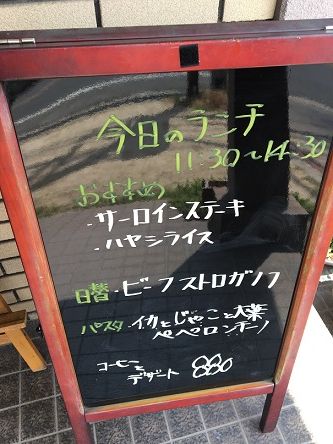 今日のランチ
11:30〜14:30
おすすめ
・サーロインステーキ
・ハヤシライス
日替・ビーフストロガノフ
パスタ・イカとじゃこと大葉
ペペロンチーノ
コーヒーと
デザート